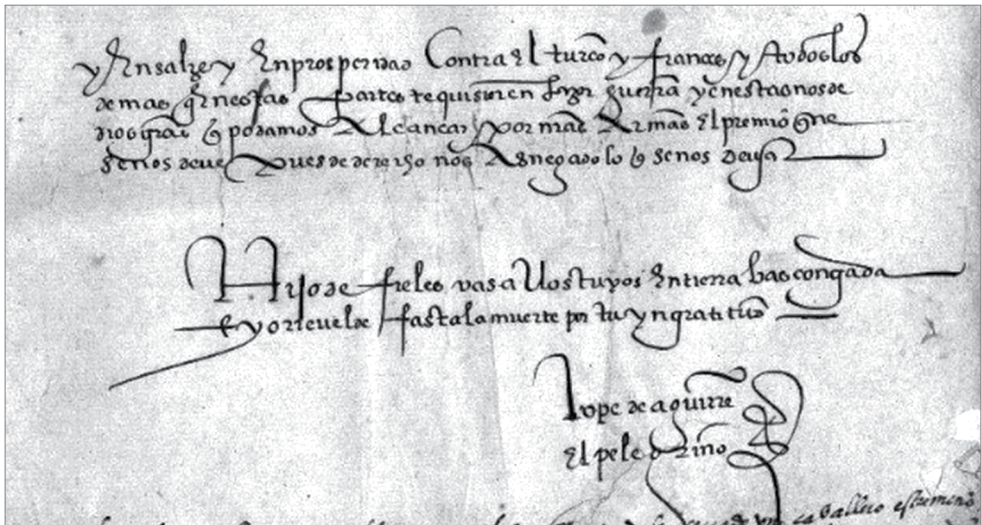 y Ensalçe y En prosperidad Contra El turco y frances y A todos los
demas q̃ en esas partes te quisieren hazer guerra y en estas nos de
dios graçia q̃ podamos Alcançar por ñras Armas El premio que
se nos deue Pues de derecho nos As negado lo q̃ se nos deuia
Hijo de fieles vasallos tuyos En tierra bascongada
E yo rreuelde fasta la muerte por tu yngratitud
lope de aguirre
El peregrino
cauallero